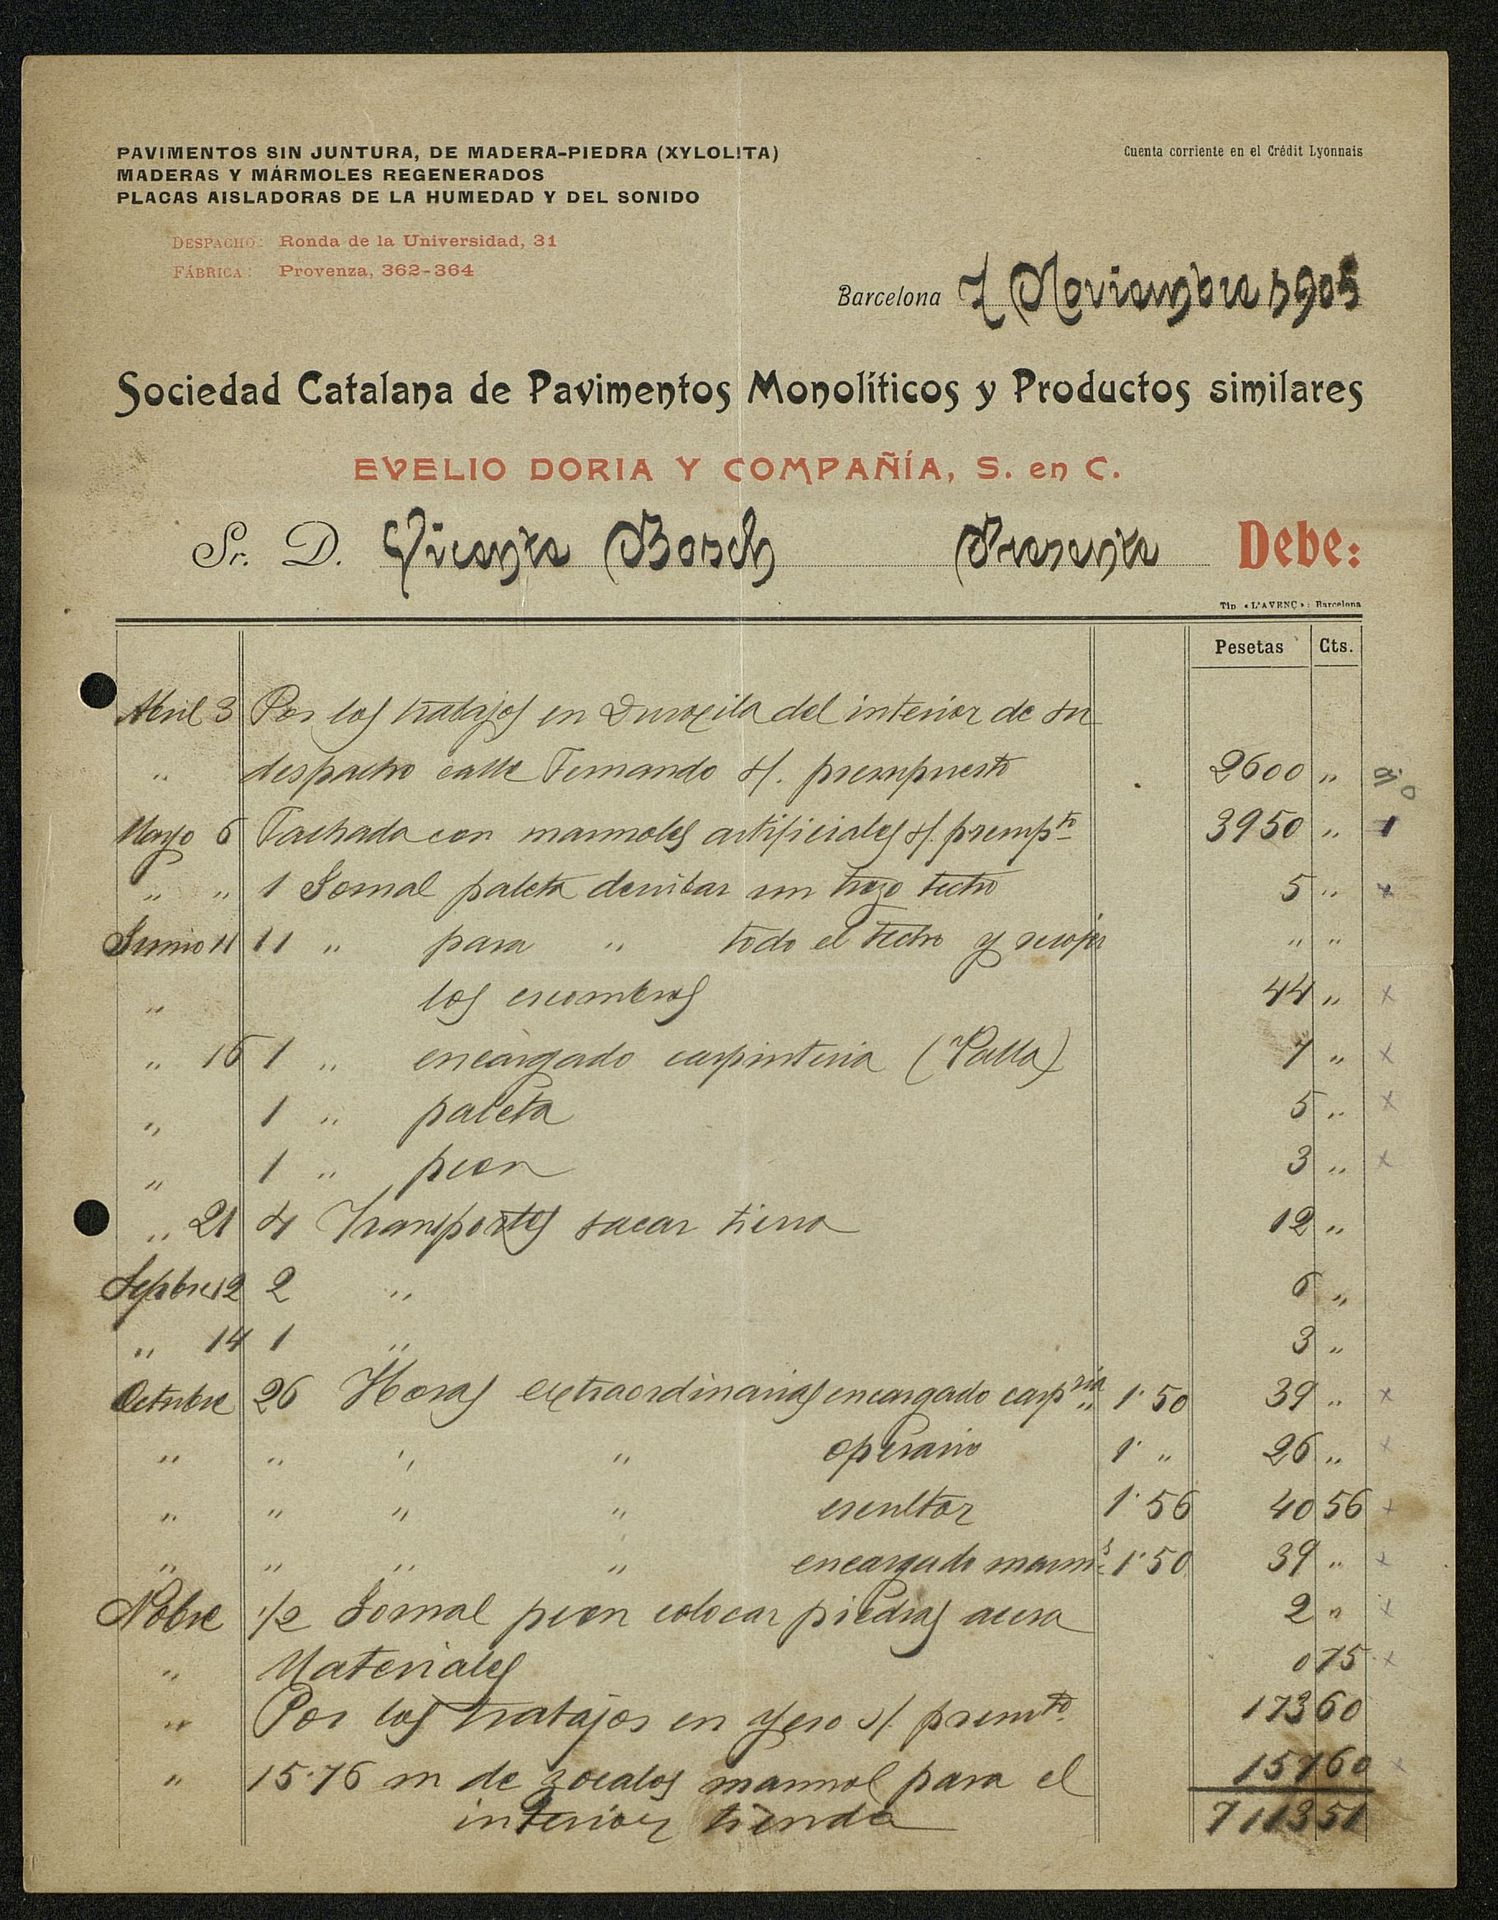 PAVIMENTOS SIN JUNTURA, DE MADERA-PIEDRA (XYLOLITA)
MADERAS Y MÁRMOLES REGENERADOS
PLACAS AISLADORAS DE LA HUMEDAD Y DEL SONIDO
Cuenta corriente en el Crédit Lyonnais
DESPACHO: Ronda de la Universidad, 31
FÁBRICA: Provenza, 362-364
Barcelona 7 Noviembre 1905
Sociedad Catalana de Pavimentos Monolíticos y Productos similares
EVELIO DORIA Y COMPAÑÍA, S. en C.
Sr. D. Vicente Bosch Presente Debe:
Tip. «L'AVENÇ»: Barcelona
Pesetas Cts.
Abril 3 Por los trabajos en Duroxila del interior de su
" despacho calle Fernando s/. presupuesto 2600 "
Mayo 6 Fachada con marmoles artificiales s/. presupto 3950 "
" " 1 Jornal paleta derribar un trozo techo 5 " x
Junio 11 11 " para " todo el techo y recojer " "
" los escombros 44 " x
" 16 1 " encargado carpinteria (Palla) 7 " x
" 1 " paleta 5 " x
" 1 " peon 3 " x
" 21 4 Transportes sacar tierra 12 "
Sepbre 12 2 " 6 "
" 14 1 " 3 "
Octubre 26 Horas extraordinarias encargado carpria 1'50 39 " x
" " " " operario 1' " 26 " x
" " " " escultor 1'56 40 56 x
" " " " encargado marms 1'50 39 " x
Nobre 1/2 Jornal peon colocar piedras acera 2 " x
" Materiales 0 75 x
" Por los trabajos en yeso s/. presuto 173 60
" 15'76 m de zocalos marmol para el 157 60 x
interior tienda 7113 51